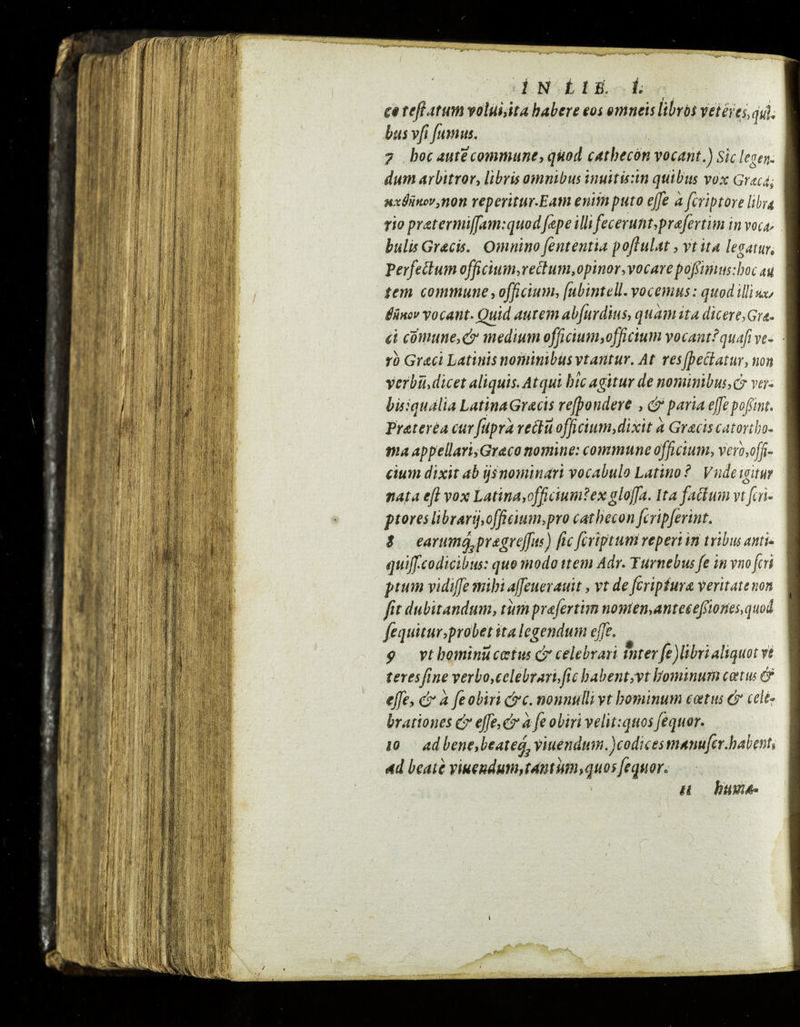 IN LIB. I.
ce testatum volui,ita habere eos omneis libros veteres,qui-
bus vsi sumus.
7 hoc autẽ commune, quod cathecon vocant.) Sic legen-
dum arbitror, libris omnibus inuitis:in quibus vox Græca,
καθῆκον,non reperitur.Eam enim puto esse à scriptore libra
rio prætermissam:quod sæpe illi fecerunt,præsertim in voca-
bulis Græcis. Omnino sententia postulat, vt ita legatur.
Perfectum officium,rectum,opinor,vocare possimus:hoc au
tem commune, officium, subintell. vocemus: quod illi κα-
θῆκον vocant. Quid autem absurdius, quam ita dicere,Græ-
ci cõmune,& medium officium,officium vocant? quasi ve-
rò Græci Latinis nominibus vtantur. At res spectatur, non
verbũ,dicet aliquis. Atqui hîc agitur de nominibus,& ver-
bis:qualia Latina Græcis respondere , & paria esse possint.
Præterea cur suprà rectũ officium,dixit à Græcis catortho-
ma appellari,Græco nomine: commune officium, verò,offi-
cium dixit ab ijs nominari vocabulo Latino ? Vnde igitur
nata est vox Latina,officium? ex glossa. Ita factum vt scri-
ptores librarij,officium,pro cathecon scripserint.
8 earumq; prægressus) sic scriptum reperi in tribus anti-
quiss.codicibus: quo modo item Adr. Turnebus se in vno scri
ptum vidisse mihi asseuerauit, vt de scripturæ veritate non
sit dubitandum, tùm præsertim nomen,antecessiones,quod
sequitur,probet ita legendum esse.
9 vt hominũ cœtus & celebrari inter se)libri aliquot ve
teres sine verbo,celebrari,sic habent,vt hominum cœtus &
esse, & à se obiri &c. nonnulli vt hominum cœtus & cele-
brationes & esse,& à se obiri velit:quos sequor.
10 ad bene,beateq; viuendum.)codices manuscr.habent,
ad beatè viuendum,tantùm,quos sequor.
11 huma-